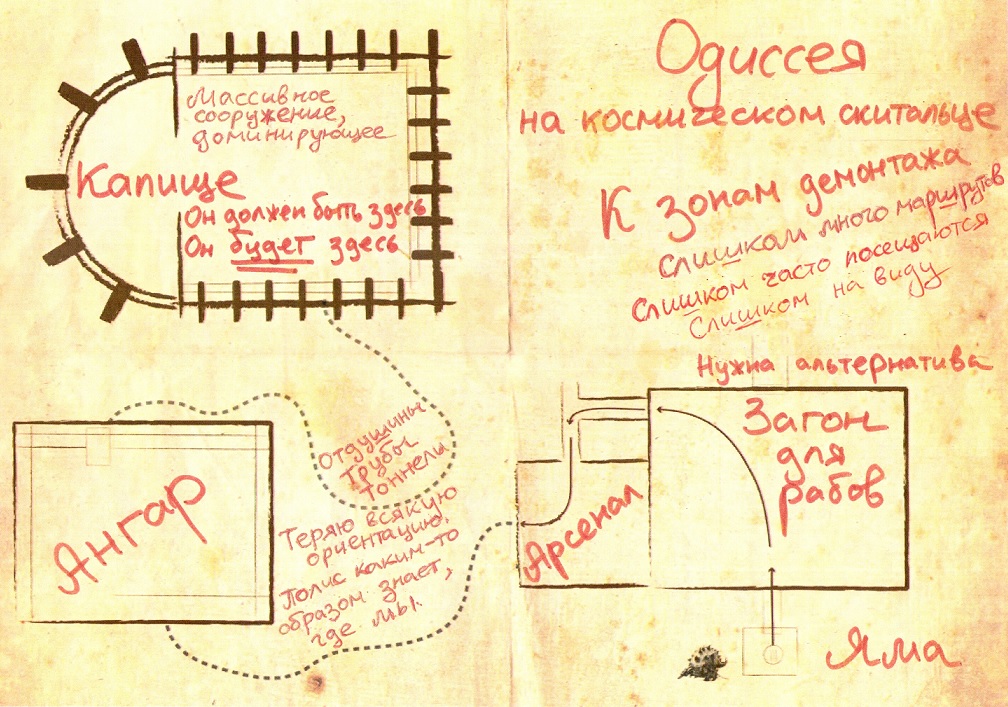 Одиссея
на космическом скитальце
К зонам демонтажа
слишком много маршрутов
слишком часто посещаются
слишком на виду
Нужна альтернатива
Массивное
сооружение,
доминирующее
Капище
Он должен быть здесь
Он будет здесь
Отдушины
трубы
тоннели
Теряю всякую
ориентацию.
Полис каким-то
образом знает,
где мы.
Ангар
Арсенал
Загон
для
рабов
Яма